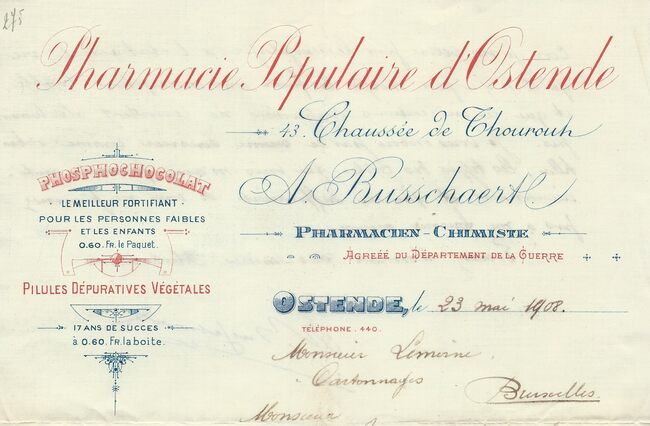 275
Pharmacie Populaire d'Ostende
43. Chaussée de Thourout
A. Busschaert
PHARMACIEN-CHIMISTE
AGREÉÉ DU DÉPARTEMENT DE LA GUERRE
OSTENDE, le 23 mai 1908.
TÉLÉPHONE. 440.
PHOSPHOCHOCOLAT
LE MEILLEUR FORTIFIANT
POUR LES PERSONNES FAIBLES
ET LES ENFANTS
0.60. Fr. le Paquet.
PILULES DÉPURATIVES VÉGÉTALES
17 ANS DE SUCCES
à 0.60. FR. la boite.
Monsieur Lemoine
Cartonnages
Bruxelles.
Monsieur